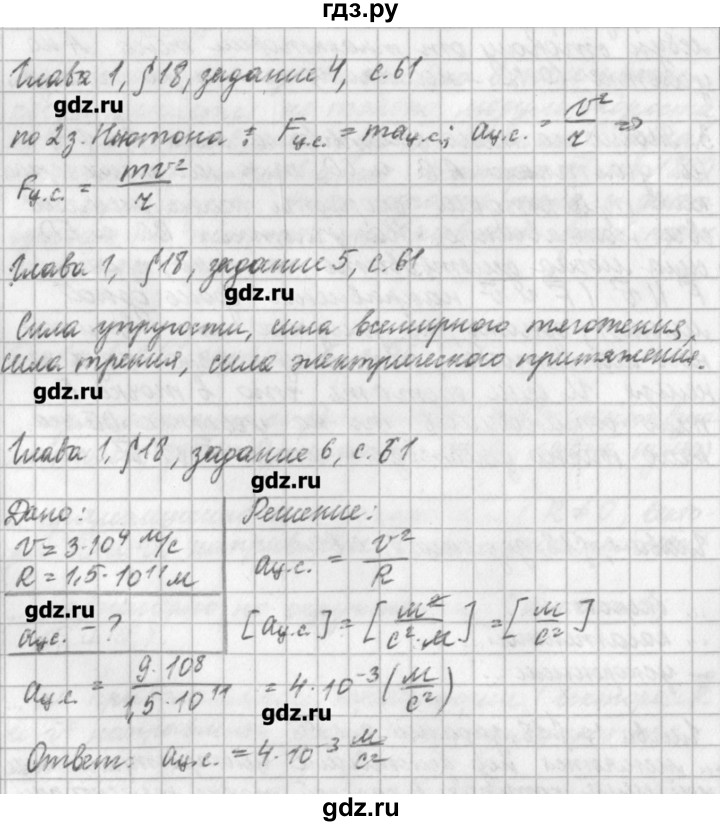 гдз.ру
Глава 1, §18, задание 4, с.61
gdz.ru
по 2 з. Ньютона : Fц.с. = maц.с.; aц.с. = v²/r ⇒
Fц.с. = mv²/r
Глава 1, §18, задание 5, с.61
gdz.ru
Сила упругости, сила всемирного тяготения,
сила трения, сила электрического притяжения.
gdz.ru
Глава 1, §18, задание 6, с.61
gdz.ru
Дано: Решение:
v = 3·10⁴ м/с
R = 1,5·10¹¹ м
aц.с. = v²/R
gdz.ru
aц.с. = ?
[aц.с.] = [м²/с²·м] = [м/с²]
aц.с. = 9·10⁸/1,5·10¹¹ = 4·10⁻³ (м/с²)
gdz.ru
Ответ: aц.с. = 4·10⁻³ м/с²
gdz.ru